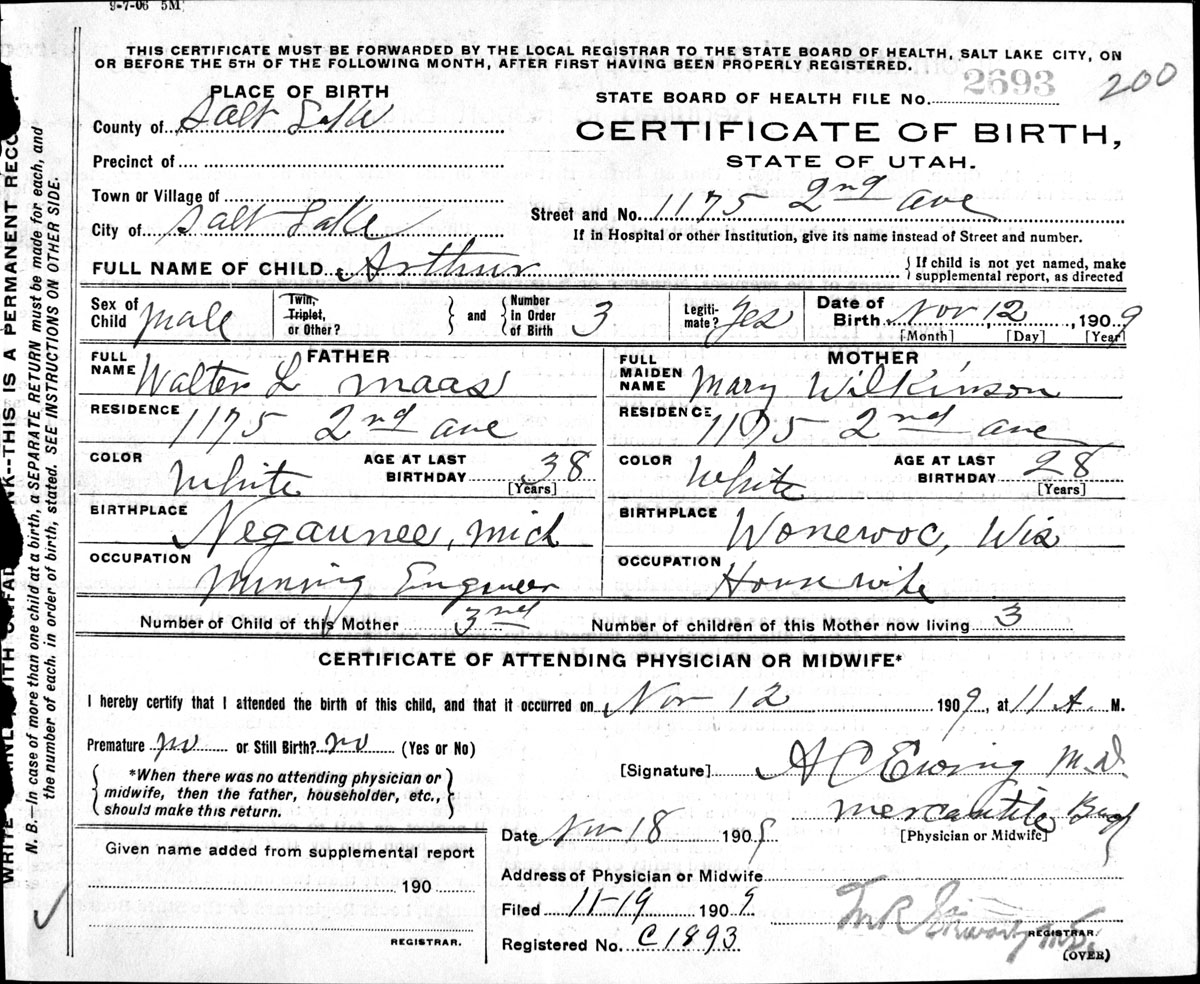 9-7-06 5M
THIS CERTIFICATE MUST BE FORWARDED BY THE LOCAL REGISTRAR TO THE STATE BOARD OF HEALTH, SALT LAKE CITY, ON
OR BEFORE THE 5TH OF THE FOLLOWING MONTH, AFTER FIRST HAVING BEEN PROPERLY REGISTERED.
200
PLACE OF BIRTH
STATE BOARD OF HEALTH FILE No. 2693
County of Salt Lake
CERTIFICATE OF BIRTH,
STATE OF UTAH.
Precinct of
Town or Village of
Street and No. 1175 2nd ave
City of Salt Lake
If in Hospital or other Institution, give its name instead of Street and number.
FULL NAME OF CHILD Arthur
If child is not yet named, make
supplemental report, as directed
Sex of Child male
Twin, Triplet, or Other?
and
Number in Order of Birth 3
Legiti-mate? Yes
Date of Birth Nov 12, 1909
[Month] [Day] [Year]
FATHER
FULL NAME Walter L Maas
RESIDENCE 1175 2nd ave
COLOR White
AGE AT LAST BIRTHDAY 38
[Years]
BIRTHPLACE Negaunee, Mich
OCCUPATION Mining Engineer
MOTHER
FULL MAIDEN NAME Mary Wilkinson
RESIDENCE 1175 2nd ave
COLOR White
AGE AT LAST BIRTHDAY 28
[Years]
BIRTHPLACE Wonewoc, Wis
OCCUPATION Housewife
Number of Child of this Mother 3nd
Number of children of this Mother now living 3
CERTIFICATE OF ATTENDING PHYSICIAN OR MIDWIFE*
I hereby certify that I attended the birth of this child, and that it occurred on Nov 12 1909, at 11 A. M.
Premature no or Still Birth? no (Yes or No)
*When there was no attending physician or
midwife, then the father, householder, etc.,
should make this return.
[Signature] A C Ewing M.D.
Mercantile Bldg
[Physician or Midwife]
Date Nov 18 1909
Given name added from supplemental report
190
REGISTRAR.
Address of Physician or Midwife
Filed 11-19 1909
Registered No. C1893
REGISTRAR.
(OVER)
N. B.—In case of more than one child at birth, a SEPARATE RETURN must be made for each, and
the number of each, in order of birth, stated. SEE INSTRUCTIONS ON OTHER SIDE.
THIS IS A PERMANENT